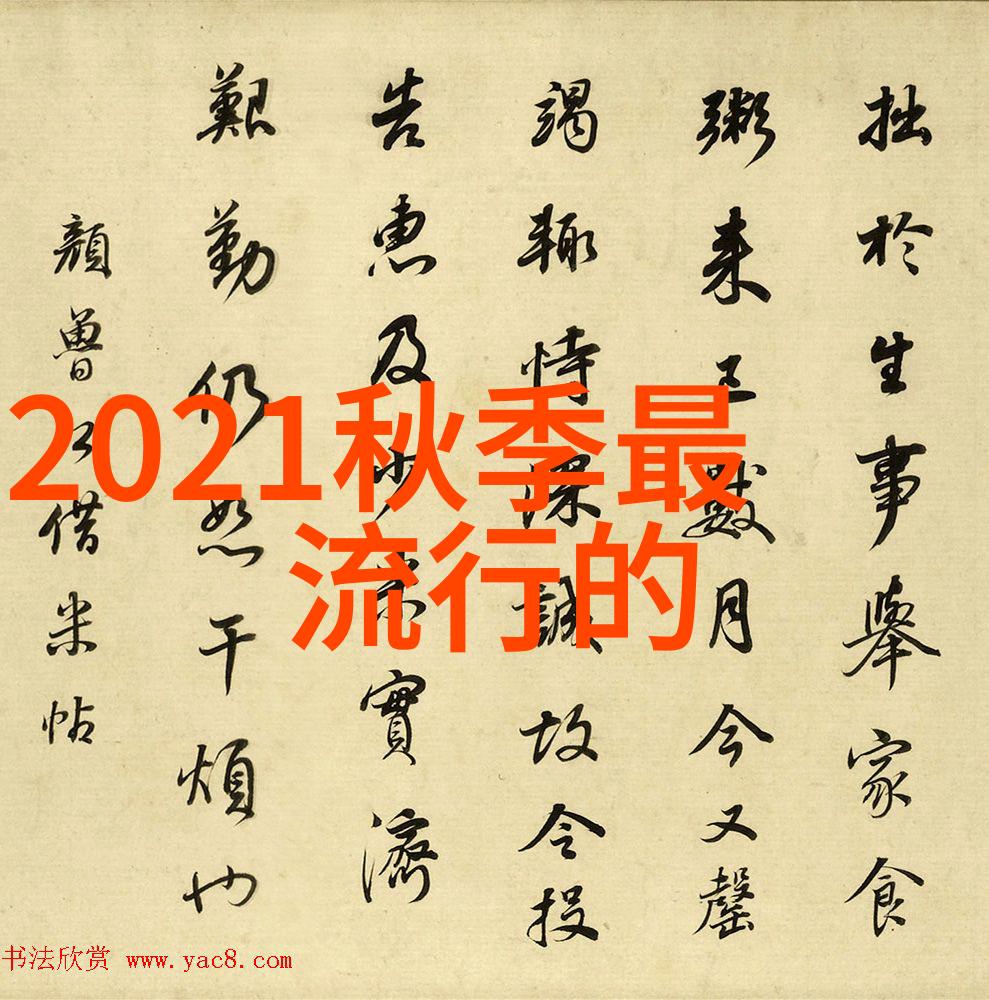 拙於生事舉家食
粥來已數月今又罄
竭輙恃深誠故令投
告惠及少米實濟
艱勤仍恕干煩也
顏魯公借米帖
2021秋季最
流行的
书法欣赏 www.yac8.com